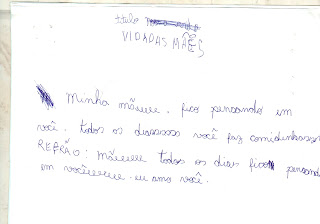 titulo
VIDADAS MÃES
Minha mãeeeee. fico pensando em
você. todos os diasssss você faz comidinhasss
REFRÃO: mãeeeeee todos os dias fico pensand
em vocêeeeeee. eu amo você.